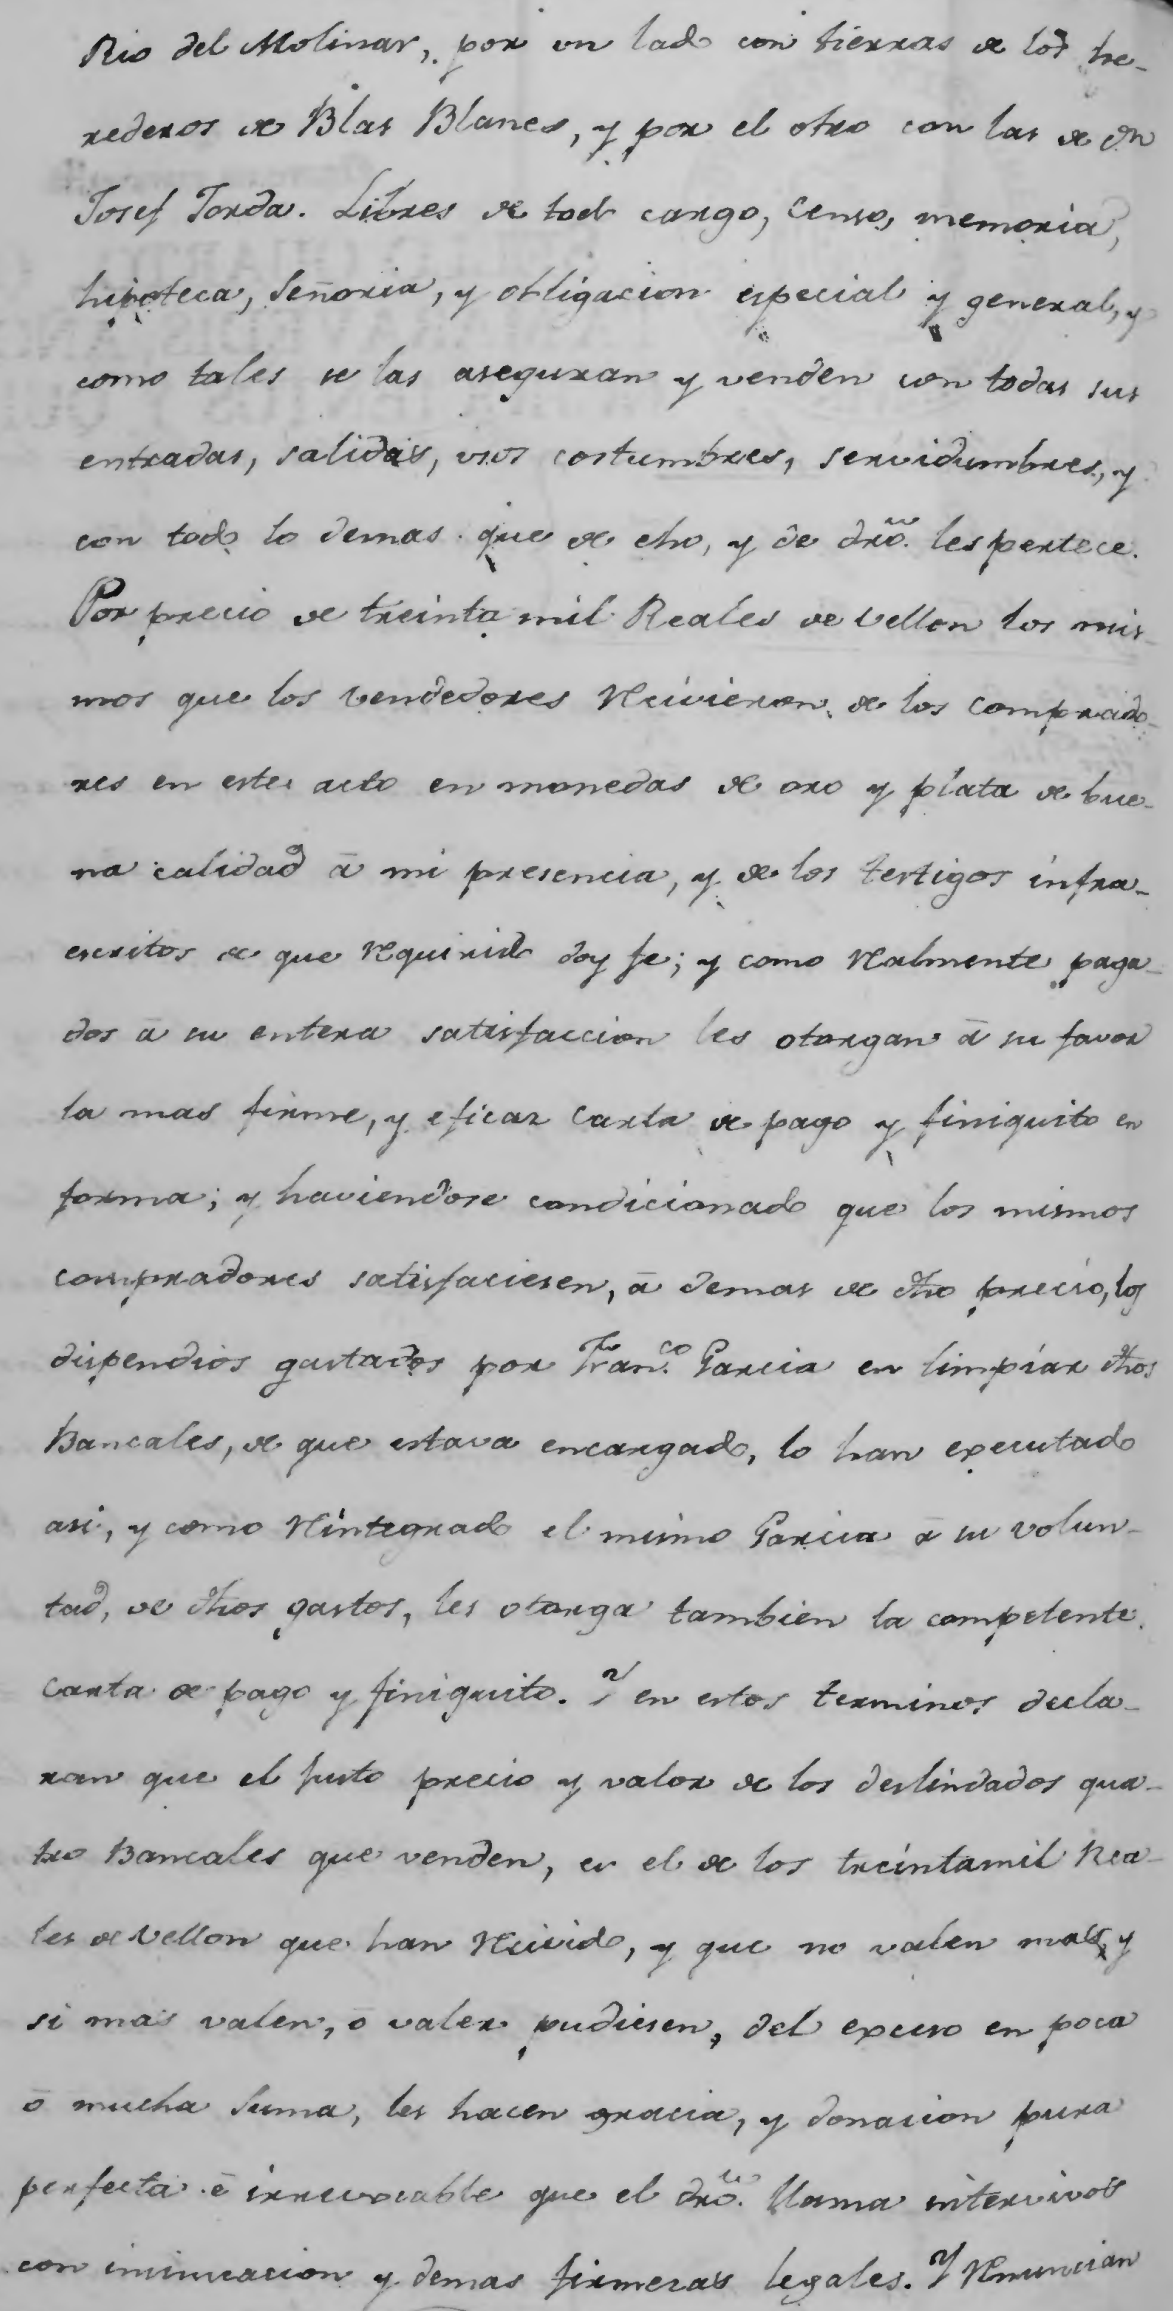 Rio del Molinar, por un lado con tierras de los he-
rederos de Blas Blanes, y por el otro con las de Dn
Josef Jorda. Libres de todo cargo, Censo, memoria,
hipoteca, Señoria, y obligacion especial y general, y
como tales se las aseguran y venden con todas sus
entradas, salidas, usos costumbres, servidumbres, y
con todo lo demas que de echo, y de dro. les pertece.
Por precio de treinta mil Reales de vellon los mis-
mos que los vendedores Recivieron de los comprado-
res en este acto en monedas de oro y plata de bue-
na calidad á mi presencia, y de los testigos infra-
escritos de que Requirido doy fe; y como Realmente paga-
dos á su entera satisfaccion les otorgan á su favor
la mas firme, y eficaz Carta de pago y finiquito en
forma; y haviendose condicionado que los mismos
compradores satisfaciesen, á demas de dho precio, los
dispendios gastados por Franco. Garcia en limpiar dhos
Bancales, de que estava encargado, lo han executado
asi, y como Reintegrado el mismo Garcia á su volun-
tad, de dhos gastos, les otorga tambien la competente
Carta de pago y finiquito. Y en estos terminos decla-
ran que el justo precio y valor de los deslindados qua-
tro Bancales que venden, es el de los treintamil Rea-
les de vellon que han Recivido, y que no valen mas, y
si mas valen, ó valer pudiesen, del exceso en poca
ó mucha suma, les hacen gracia, y donacion pura
perfecta é irrevocable que el dro. llama intervivos
con insinuacion y demas firmezas legales. Y Renuncian